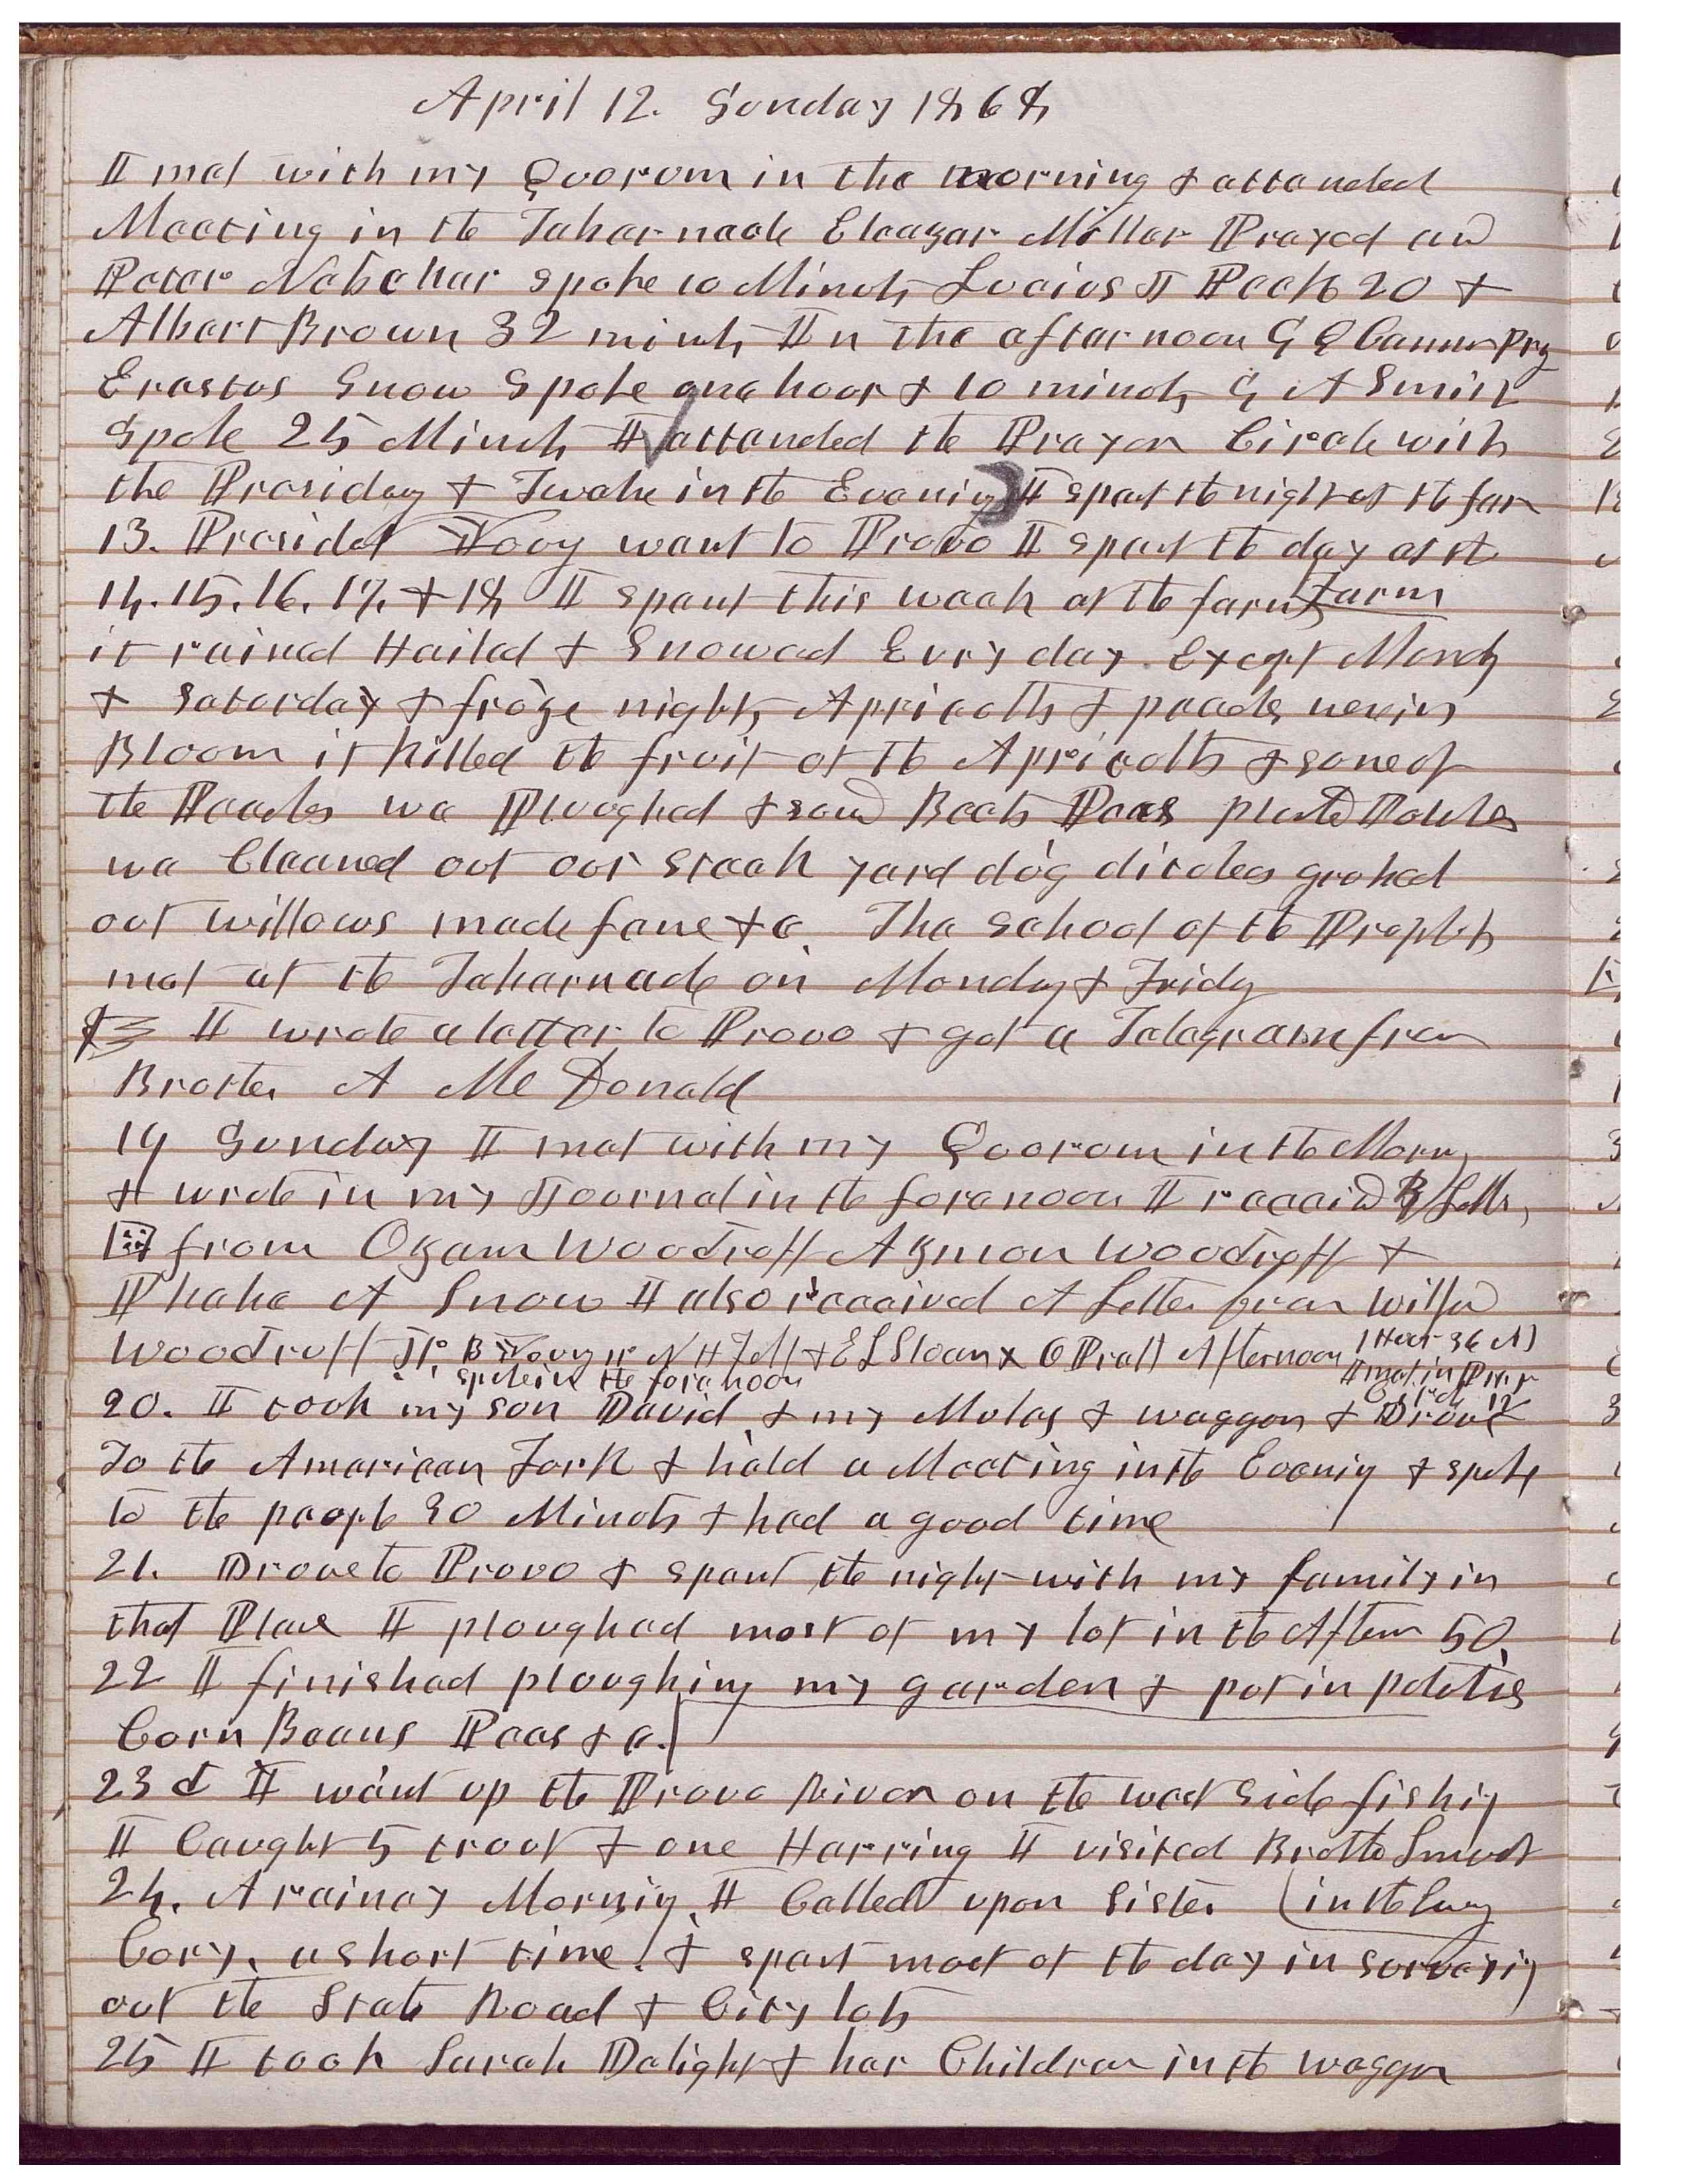 April 12. Sunday 1868
I met with my Quorum in the morning & attended
Meeting in the Tabernacle Eleazar Miller Prayed and
Peter Nebekar spoke 10 Minuts Lucius N Peck 20 &
Albert Brown 32 minuts In the afternoon G Q Cannon Pry
Erastus Snow Spoke one hour & 10 minuts G A Smith
Spoke 25 Minuts I attended the Prayer Circle with
the Presidency & Twelve in the Evening I spent the night at the farm
13. Presidet Young went to Provo I spent the day at the
Farm
14. 15. 16. 17. & 18 I spent this week at the farm
it rained Hailed & Snowed Evry day Except Mondy
& Saturday & froze nights Apricotts & peaches were in
Bloom it killed the fruit of the Apricotts & some of
the Peaches we Ploughed & sowed Beets Peas planted Potatoes
we Cleaned out our Stack yard dug ditches grubed
out willows made fence &c. The School of the Prophets
met at the Tabernacle on Monday & Friday
I wrote a letter to Provo & got a Telegram from
Brother A McDonald
19 Sunday I met with my Quorum in the Morning
& wrote in my Journal in the forenoon I receivd 3 Letters
from Ozem Woodruff Azmon Woodruff &
Phebe A Snow I also received A Letter from Wilford
Woodruff Jr. B Young jr N H Felt & E L Sloan & O Pratt Afternoon 1 Hour 36 M
spoke in the forenoon I met in Prayer
Circle 12
20. I took my son David & my Mules & waggon & Drove
To the American Fork & held a Meeting in the Evening & spoke
to the people 30 Minuts & had a good time
21. Drove to Provo & spent the night with my family in
that Place I ploughed most of my lot in the Aftern 50.
22 I finished ploughing my garden & put in potatoes
Corn Beans Peas &c.
23d I went up the Provo River on the west side fishing
I Caught 5 trout & one Herring I visited Brother Smoot
in the Evening
24. A rainey Morning. I Called upon Sister
Cory. a short time. & spent most of the day in surveying
out the State Road & City lots
25 I took Sarah Delight & her Children in the waggon